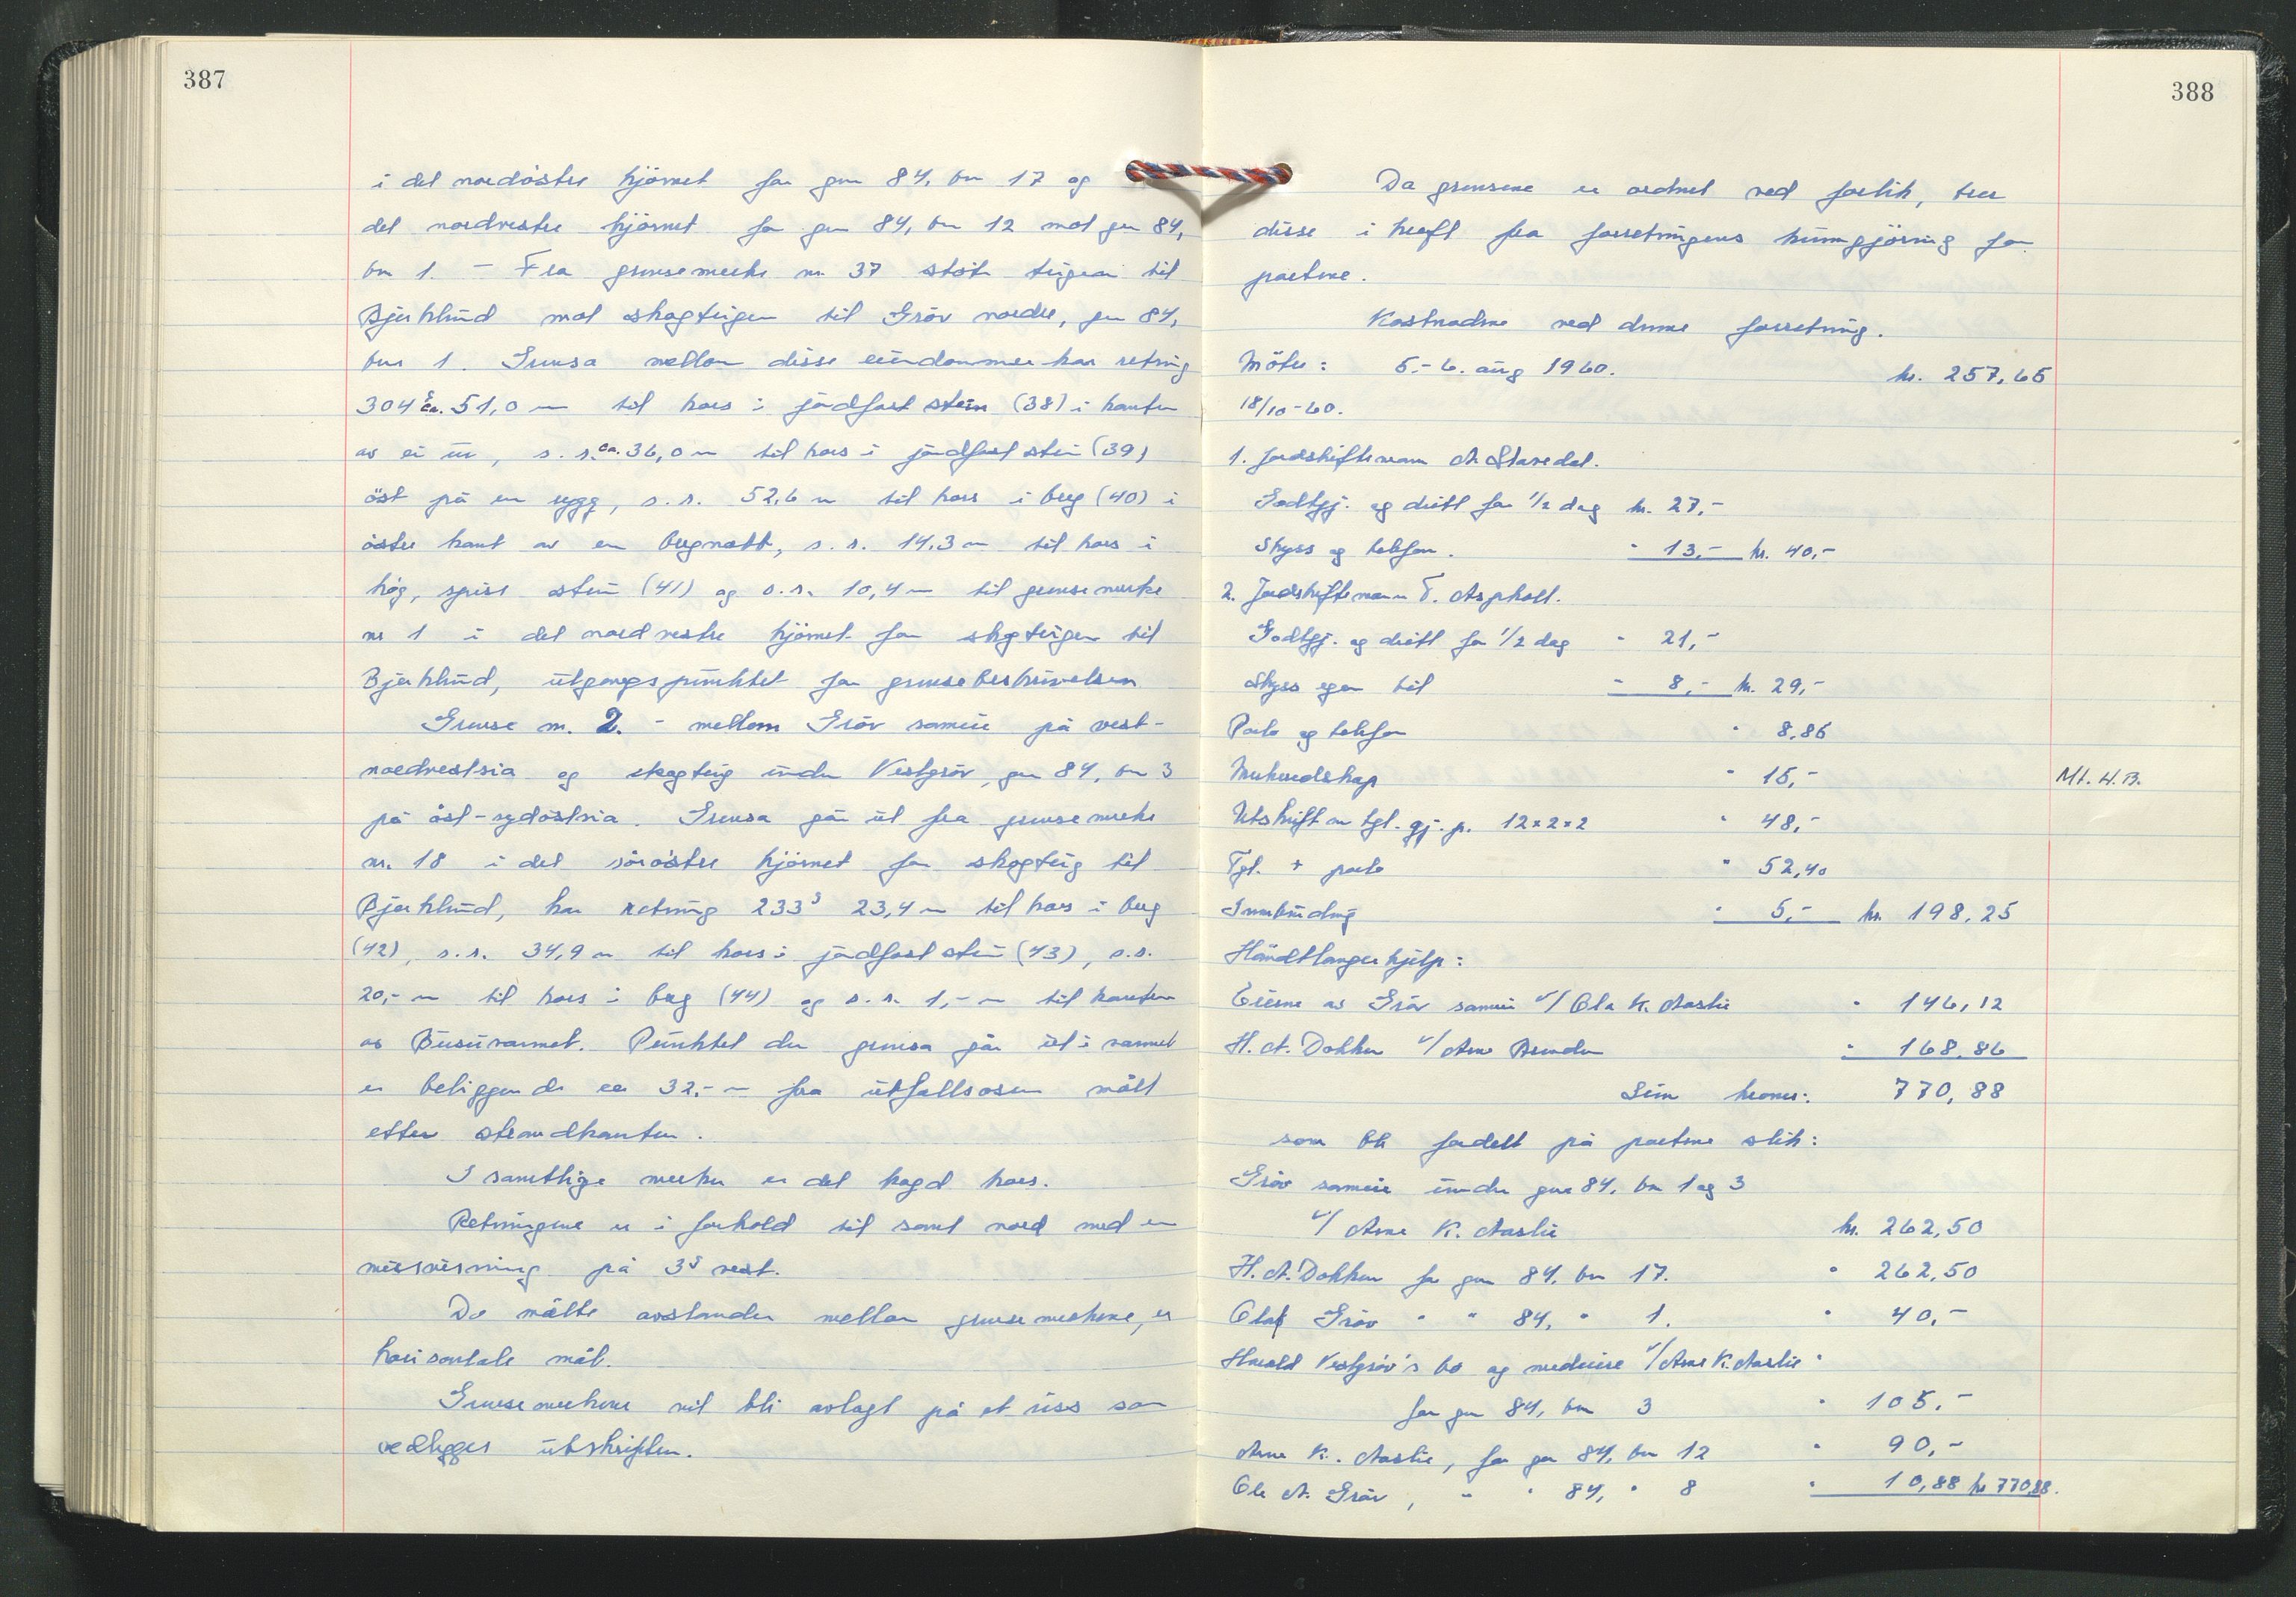 387
i det nordöstre hjörnet for gnr 84, bnr 17 og
det nordvestre hjörnet for gnr 84, bnr 12 mot gnr 84,
bnr 1. - Fra grensemerke nr. 37 stöter teigen til
Bjerklund mot skogteigen til Gröv nordre, gnr 84,
bnr 1. Grensa mellom disse eiendommer har retning
304g ca. 51,0 m til kors i jordfast stein (38) i kanten
av ei ur, s. r. ca. 36,0 m til kors i jordfast stein (39)
öst på en rygg, s. r. 52,6 m til kors i berg (40) i
östre kant av en bergnabb, s. r. 14,3 m til kors i
hög, spiss stein (41) og s. r. 10,4 m til grensemerke
nr 1 i det nordvestre hjörnet for skogteigen til
Bjerklund, utgangspunktet for grensebeskrivelsen
Grense nr. 2. - mellom Gröv sameie på vest-
nordvestsia og skogteig under Vestgröv, gnr 84, bnr 3
på öst-sydöstsia. Grensa går ut fra grensemerke
nr. 18 i det söröstre hjörnet for skogteig til
Bjerklund, har retning 233g 23,4 m til kors i berg
(42), s. r. 34,9 m til kors i jordfast stein (43), s. r.
20,- m til kors i berg (44) og s. r. 1,- m til kanten
av Busuvannet. Punktet der grensa går ut i vannet
er beliggende ca 32,- m fra utfallsosen målt
etter strandkanten.
I samtlige merker er det hogd kors.
Retningene er i forhold til sant nord med en
misvisning på 3g vest.
De målte avstander mellom grensemerkene, er
horisontale mål.
Grensemerkene vil bli avlagt på et riss som
vedlegges utskriften.
388
Da grensene er ordnet ved forlik, trer
disse i kraft fra forretningens kunngjöring for
partene.
Kostnadene ved denne forretning.
Möter: 5.-6. aug 1960. kr. 257,65
18/10-60.
1. Jordskiftemann A. Stavedal.
Godtgj. og diett for 1/2 dag kr. 27,-
Skyss og telefon. " 13,- kr. 40,-
2. Jordskiftemann T. Asphall.
Godtgj. og diett for 1/2 dag " 21,-
Skyss egen bil " 8,- kr. 29,-
Porto og telefon " 8,85
Merkeredskap " 15,- Mt. H.B.
Utskrift av tgl. gj. p. 12×2×2 " 48,-
Tgl. + porto " 52,40
Innbinding " 5,- kr. 198,25
Håndtlangerhjelp:
Eierne av Gröv sameie v/ Ola K. Aaslie " 146,12
H. A. Dokken v/ Arne Brenden " 168.86
Sum kroner: 770,88
som blir fordelt på partene slik:
Gröv sameie under gnr 84, bnr 1 og 3
v/ Arne K. Aaslie kr. 262,50
H. A. Dokken for gnr 84, bnr 17. " 262,50
Olaf Gröv " " 84, " 1. " 40,-
Harald Vestgröv's bo og medeiere v/ Arne K. Aaslie "
for gnr 84, bnr 3 " 105,-
Arne K. Aaslie, for gnr 84, bnr 12 " 90,-
Ole A. Gröv, " " 84, " 8 " 10,88 kr 770,88.